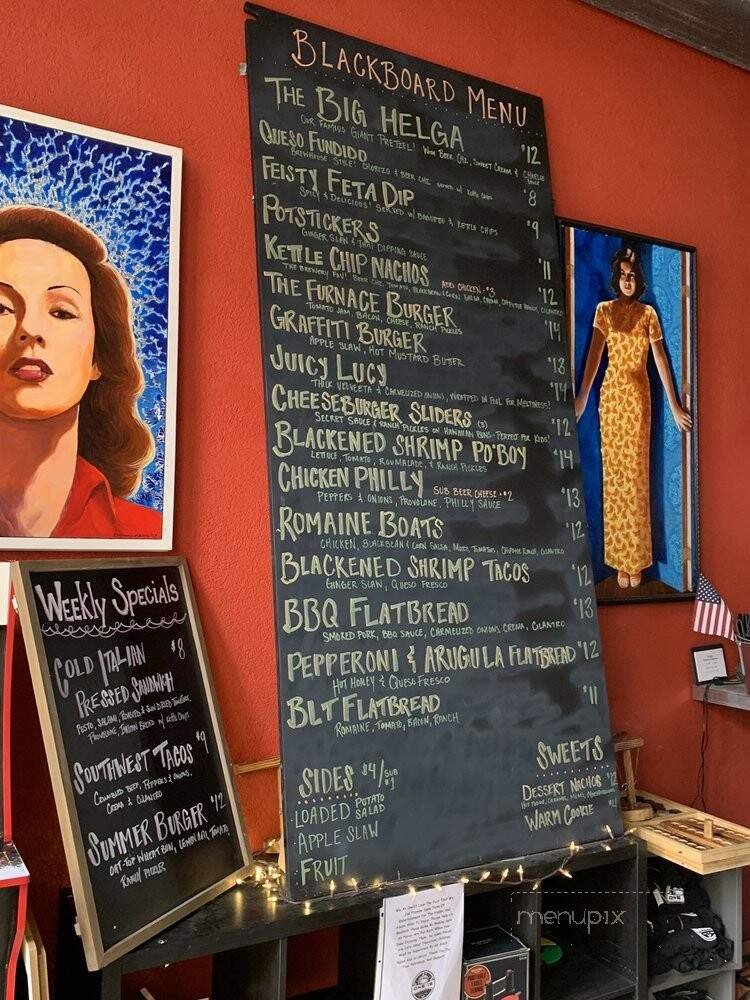 BLACKBOARD MENU
THE BIG HELGA $12
OUR FAMOUS GIANT PRETZEL! WITH BEER CHZ, SWEET CREAM &
QUESO FUNDIDO $8
BREWHOUSE STYLE! CHORIZO & BEER CHZ SERVED W/ KETTLE CHIPS
FEISTY FETA DIP $9
SPICY & DELICIOUS! SERVED W/ BAGUETTE & KETTLE CHIPS
POTSTICKERS $11
GINGER SLAW & THAI DIPPING SAUCE
KETTLE CHIP NACHOS ADD CHICKEN +$3 $12
THE BREWERY FAV! BEER CHZ, TOMATO, BLACKBEAN & CORN SALSA, CREMA, CHIPOTLE RANCH, CILANTRO
THE FURNACE BURGER $14
TOMATO JAM, BACON, CHEESE, RANCH PICKLES
GRAFFITI BURGER $13
APPLE SLAW, HOT MUSTARD BUTTER
JUICY LUCY $14
THICK VELVEETA & CARMELIZED ONIONS, WRAPPED IN FOIL FOR MELTINESS!
CHEESEBURGER SLIDERS (3) $12
SECRET SAUCE & RANCH PICKLES ON HAWAIIAN BUNS - PERFECT FOR KIDS!
BLACKENED SHRIMP PO'BOY $14
LETTUCE, TOMATO, ROUMALADE, & RANCH PICKLES
CHICKEN PHILLY SUB BEER CHEESE +$2 $13
PEPPERS & ONIONS, PROVOLONE, PHILLY SAUCE
ROMAINE BOATS $12
CHICKEN, BLACKBEAN & CORN SALSA, MOZZ, TOMATOES, CHIPOTLE RANCH, CILANTRO
BLACKENED SHRIMP TACOS $12
GINGER SLAW, QUESO FRESCO
BBQ FLATBREAD $13
SMOKED PORK, BBQ SAUCE, CARMELIZED ONIONS, CREMA, CILANTRO
PEPPERONI & ARUGULA FLATBREAD $12
HOT HONEY & QUESO FRESCO
BLT FLATBREAD $11
ROMAINE, TOMATO, BACON, RANCH
SIDES $4/SUB $1
LOADED POTATO SALAD
APPLE SLAW
FRUIT
SWEETS
DESSERT NACHOS $12
WARM COOKIE
WEEKLY SPECIALS
COLD ITALIAN $8
PRESSED SANDWICH
PESTO, SALAMI, ROASTED & SUN DRIED TOMATOES,
PROVOLONE, ITALIAN BREAD W/ KETTLE CHIPS
SOUTHWEST TACOS $9
CRUMBLED BEEF, PEPPERS & ONIONS,
CREMA & CILANTRO
SUMMER BURGER $12
OAT-TOP WHEAT BUN, LEMON AIOLI, TOMATO
RANCH PICKLES
menupix